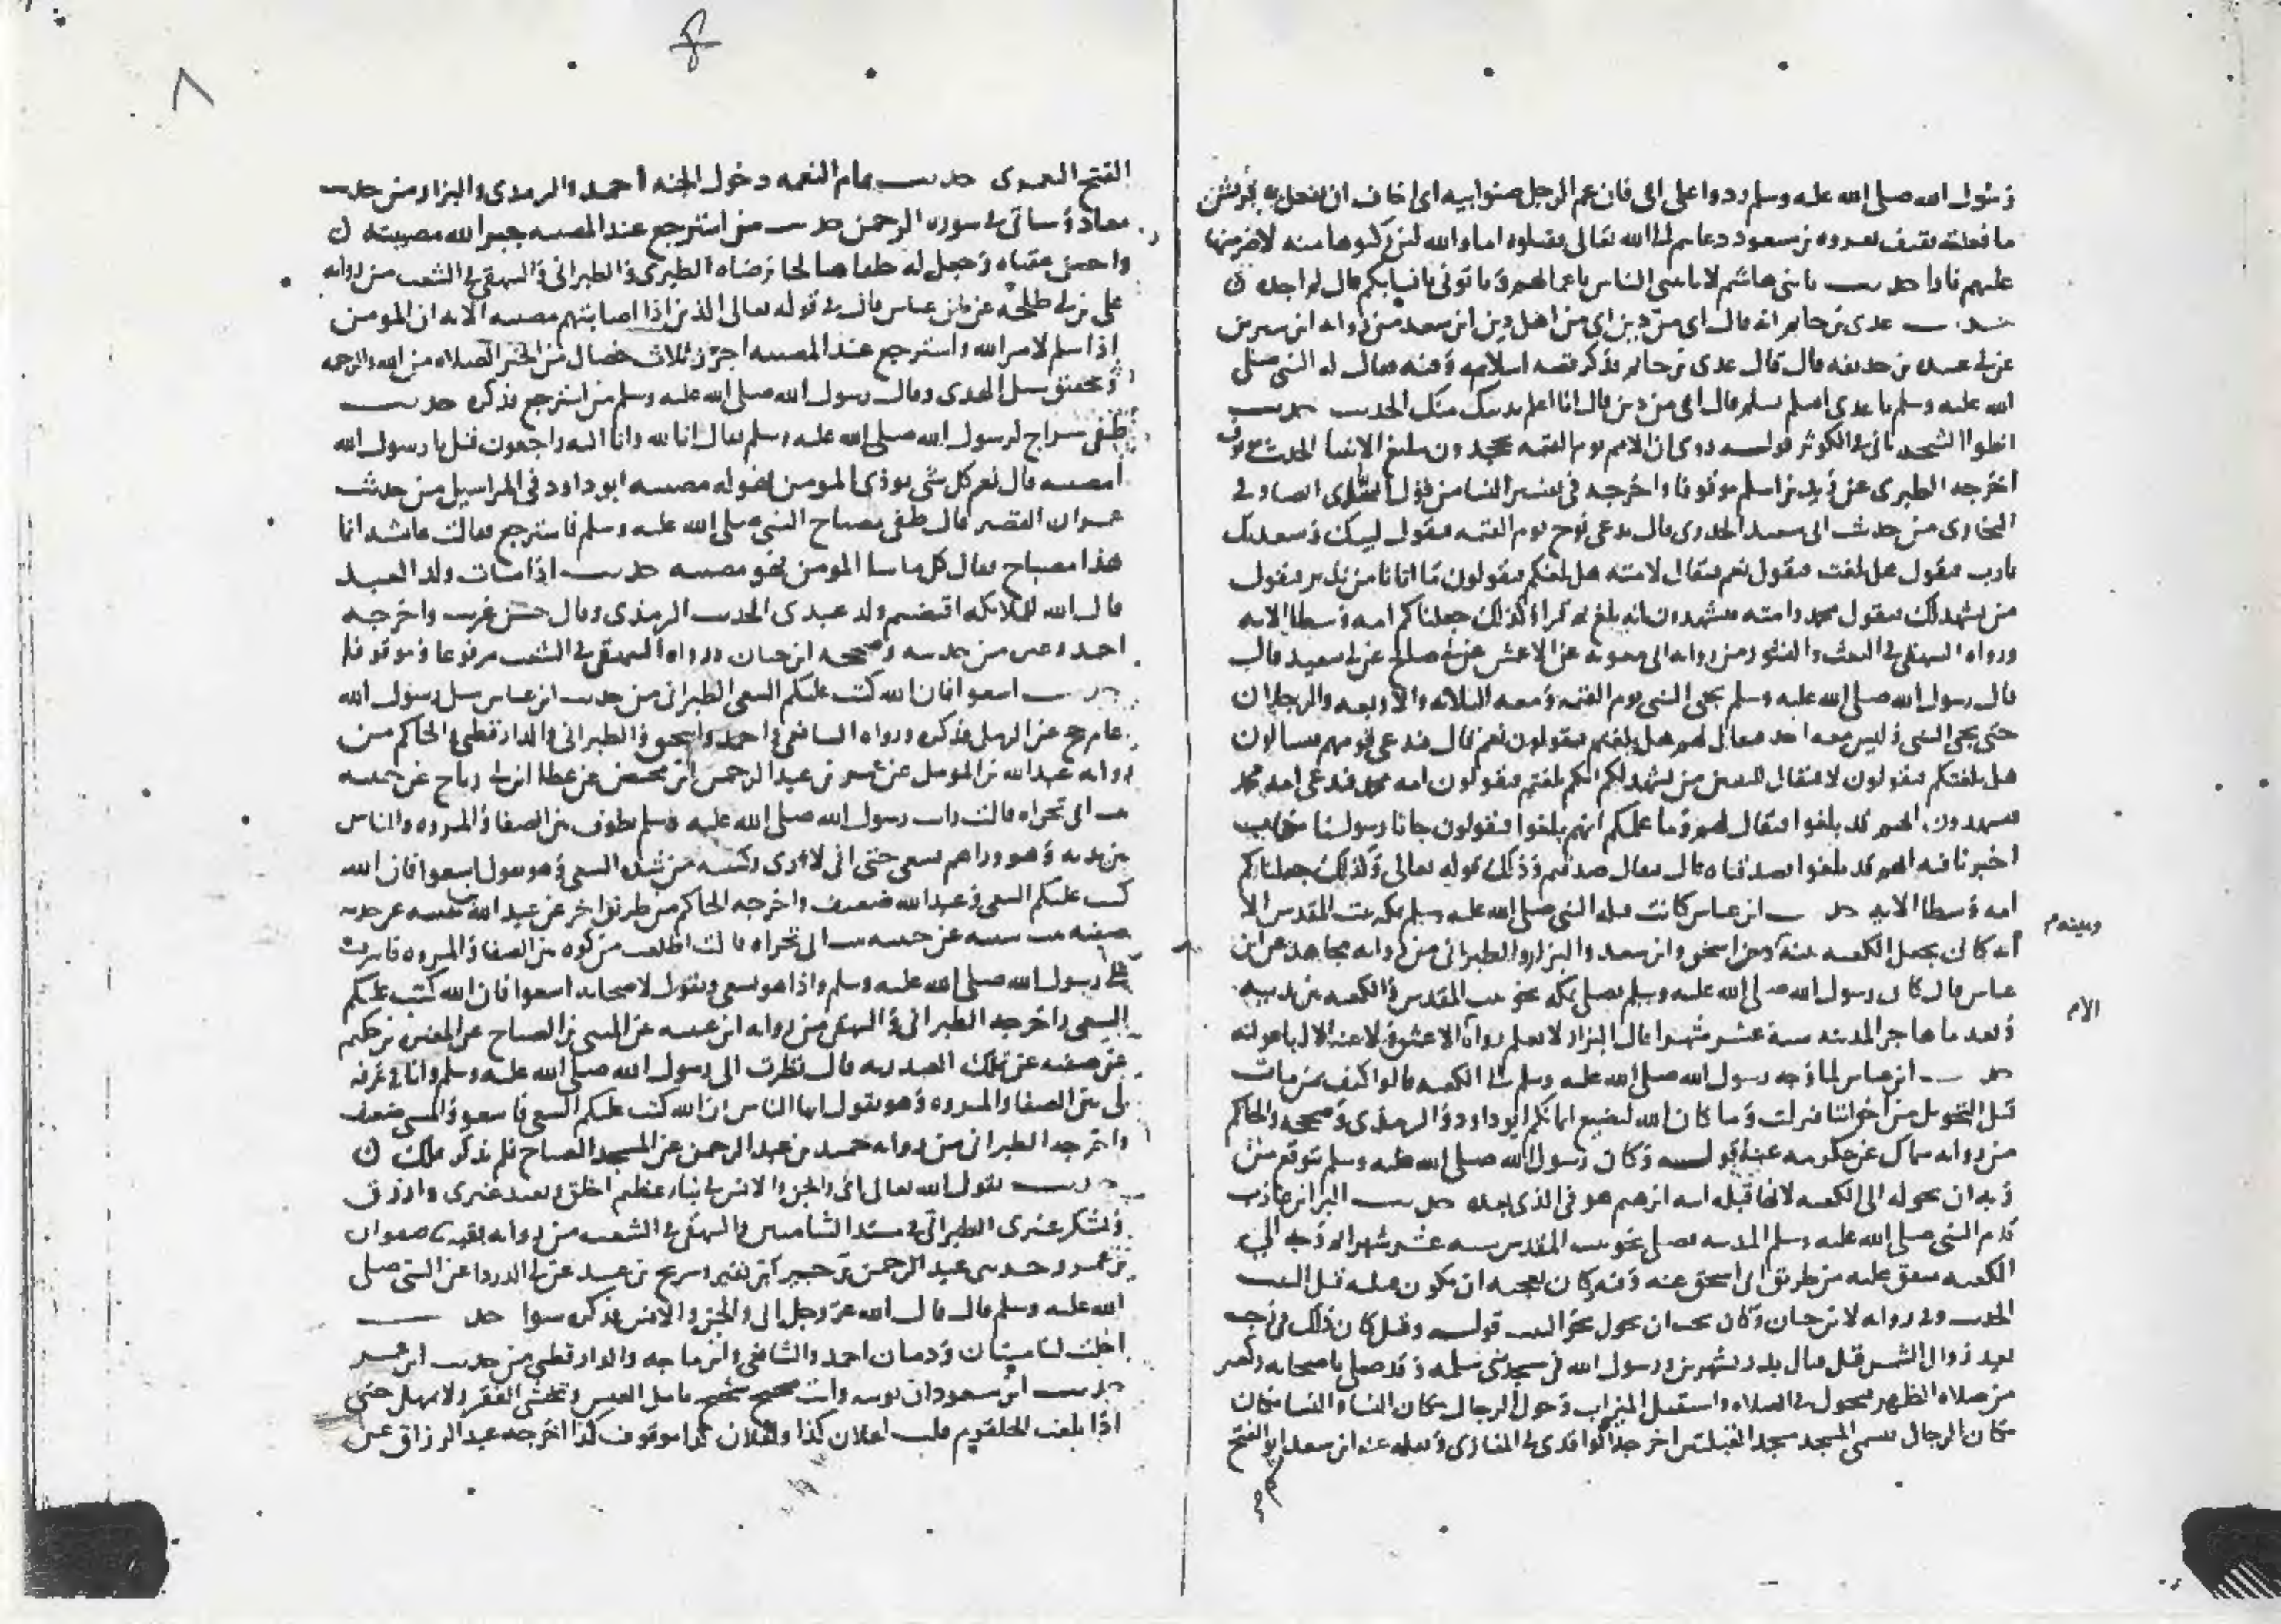 رسول الله صلى الله عليه وسلم ردوا على ابى فان عم الرجل صنو ابيه انى اخاف ان تفعل به قريش
ما فعلته ثقيف بعروه بن مسعود دعاهم الى الله تعالى فقتلوه اما والله لئن ركبوها منه لاضرمنها
عليهم نارا حديث يا بنى هاشم لا ياتينى الناس باعمالهم وتاتونى بانسابكم قال لم اجده
حديث عدى بن حاتم انه قال اى من دين اى من اهل دين ابن سعد من روايه ابن سيرين
عن ابى عبيده بن حذيفه قال قال عدى بن حاتم فذكر قصه اسلامه وفيه فقال له النبى صلى
الله عليه وسلم يا عدى اسلم تسلم قال انى من دين قال انا اعلم بدينك منك الحديث حديث
قوله روى ان الامم يوم القيمه يجحدون تبليغ الانبيا الحديث
اخرجه الطبرى عن زيد بن اسلم موقوفا واخرجه فى تفسير النسا من قول السدى
البخارى من حديث ابى سعيد الخدرى قال يدعى نوح يوم القيمه فيقول لبيك وسعديك
يارب فيقول هل بلغت فيقول نعم فيقال لامته هل بلغكم فيقولون ما اتانا من نذير فيقول
من يشهد لك فيقول محمد وامته فيشهدون انه بلغ ثم قرا وكذلك جعلناكم امه وسطا الايه
ورواه البيهقى فى البعث والنشور من روايه ابى معويه عن الاعمش عن ابى صالح عن ابى سعيد قال
قال رسول الله صلى الله عليه وسلم يجى النبى يوم القيمه ومعه الثلاثه والاربعه والرجلان
حتى يجى النبى وليس معه احد فيقال لهم هل بلغتم فيقولون نعم قال فيدعى قومهم فيسالون
هل بلغتكم فيقولون لا فيقال للنبيين من يشهد لكم انكم بلغتم فيقولون امه محمد فتدعى امه محمد
فيشهدون انهم قد بلغوا فيقال لهم وما علمكم انهم بلغوا فيقولون جانا رسولنا بكتاب
اخبرنا فيه انهم قد بلغوا فصدقناه قال فيقال صدقتم وذلك قوله تعالى وكذلك جعلناكم
امه وسطا الايه حديث ابن عباس كانت قبله النبى صلى الله عليه وسلم بمكه بيت المقدس الا
انه كان يجعل الكعبه بينه وبينه ابن اسحق وابن سعد والبزار والطبرانى من روايه مجاهد عن ابن
عباس قال كان رسول الله صلى الله عليه وسلم يصلى بمكه نحو بيت المقدس والكعبه بين يديه
وبعد ما هاجر المدينه ستة عشر شهرا قال البزار لا نعلم رواه الا الاعمش ولا عنه الا ابا عوانه
حديث ابن عباس لما وجه رسول الله صلى الله عليه وسلم الى الكعبه قالوا كيف بمن مات
قبل التحويل من اخواننا فنزلت وما كان الله ليضيع ايمانكم ابو داود والترمذى وصححه والحاكم
من روايه سماك عن عكرمه عنه قوله وكان رسول الله صلى الله عليه وسلم يتوقع من
ربه ان يحوله الى الكعبه لانها قبله ابيه ابرهيم هو فى الذى بعده حديث البرا بن عازب
قدم النبى صلى الله عليه وسلم المدينه فصلى نحو بيت المقدس سته عشر شهرا ثم وجه الى
الكعبه متفق عليه من طريق ابى اسحق عنه وفيه وكان يعجبه ان تكون قبلته قبل البيت
الحديث وفى روايه لابن حبان وكان يحب ان يحول نحو البيت قوله وقيل كان ذلك فى رجب
بعد زوال الشمس قبل قتال بدر بشهرين ورسول الله فى مسجد بنى سلمه وقد صلى باصحابه ركعتين
من صلاه الظهر فتحول فى الصلاه واستقبل الميزاب وحول الرجال مكان النسا والنسا مكان
مكان الرجال فسمى المسجد مسجد القبلتين اخرجه الواقدى فى المغازى ونقله عنه ابن سعد ابو الفتح
وبينه م
الام
٨
الفتح اليعمرى حديث تمام النعمه دخول الجنه احمد والترمذى والبزار من حديث
معاذ وسياتى فى سوره الرحمن حديث من استرجع عند المصيبه جبر الله مصيبته
واحسن عقباه وجعل له خلفا صالحا يرضاه الطبرى والطبرانى والبيهقى فى الشعب من روايه
على بن ابى طلحه عن ابن عباس قال فى قوله تعالى الذين اذا اصابتهم مصيبه الايه ان المومن
اذا سلم لامر الله واسترجع عند المصيبه احرز ثلاث خصال من الخير الصلاه من الله والرحمه
وتحقيق سبيل الهدى وقال رسول الله صلى الله عليه وسلم من استرجع فذكره حديث
طفى سراج لرسول الله صلى الله عليه وسلم فقال انا لله وانا اليه راجعون فقيل يا رسول الله
امصيبه قال نعم كل شى يوذى المومن فهو له مصيبه ابو داود فى المراسيل من حديث
عمران القصير قال طفى مصباح النبى صلى الله عليه وسلم فاسترجع فقالت عائشه انما
هذا مصباح فقال كل ما سا المومن فهو مصيبه حديث اذا مات ولد العبد
قال الله للملايكه اقبضتم ولد عبدى الحديث الترمذى وقال حسن غريب واخرجه
احمد وغيره من حديثه وصححه ابن حبان ورواه البيهقى فى الشعب مرفوعا وموقوفا
حديث اسعوا فان الله كتب عليكم السعى الطبرانى من حديث ابن عباس سئل رسول الله
عام حج عن الرمل فذكره ورواه الشافعى واحمد واسحق والطبرانى والدارقطنى والحاكم من
روايه عبد الله بن المومل عن عمر بن عبد الرحمن ابن محيصن عن عطا ابن ابى رباح عن حبيبه
بنت ابى تجراه قالت رايت رسول الله صلى الله عليه وسلم يطوف بين الصفا والمروه والناس
بين يديه وهو وراهم يسعى حتى انى لارى ركبتيه من شده السعى وهو يقول اسعوا فان الله
كتب عليكم السعى وعبد الله ضعيف واخرجه الحاكم من طريق اخر عن عبد الله
صفيه بنت شيبه عن حبيبه بنت ابى تجراه قالت اطلعت من كوه بين الصفا والمروه فاشرفت
على رسول الله صلى الله عليه وسلم واذا هو يسعى ويقول لاصحابه اسعوا فان الله كتب عليكم
السعى واخرجه الطبرانى والبيهقى من روايه ابن عيينه عن المثنى بن الصباح عن المغيره بن حكيم
عن صفيه عن تملك العبدريه قالت نظرت الى رسول الله صلى الله عليه وسلم وانا فى غرفه
لى بين الصفا والمروه وهو يقول ايها الناس ان الله كتب عليكم السعى فاسعوا والمثنى ضعيف
واخرجه الطبرانى من روايه حميد بن عبد الرحمن عن المثنى بن الصباح فلم يذكر تملك
حديث يقول الله تعالى انى والجن والانس فى نبا عظيم اخلق ويعبد غيرى وارزق
ويشكر غيرى الطبرانى فى مسند الشاميين والبيهقى فى الشعب من روايه بقيه صفوان
بن عمرو وحدثنى عبد الرحمن بن جبير ابن نفير وسريح بن عبيد عن ابى الدردا عن النبى صلى
الله عليه وسلم قال قال الله عز وجل انى والجن والانس فذكره سوا حديث
احلت لنا ميتتان ودمان احمد والشافعى وابن ماجه والدارقطنى من حديث ابن عمر
حديث ابن مسعود ان توتيه وانت صحيح شحيح تامل العيش وتخشى الفقر ولا تمهل حتى
اذا بلغت الحلقوم قلت لفلان كذا ولفلان كذا موقوف كذا اخرجه عبد الرزاق عن